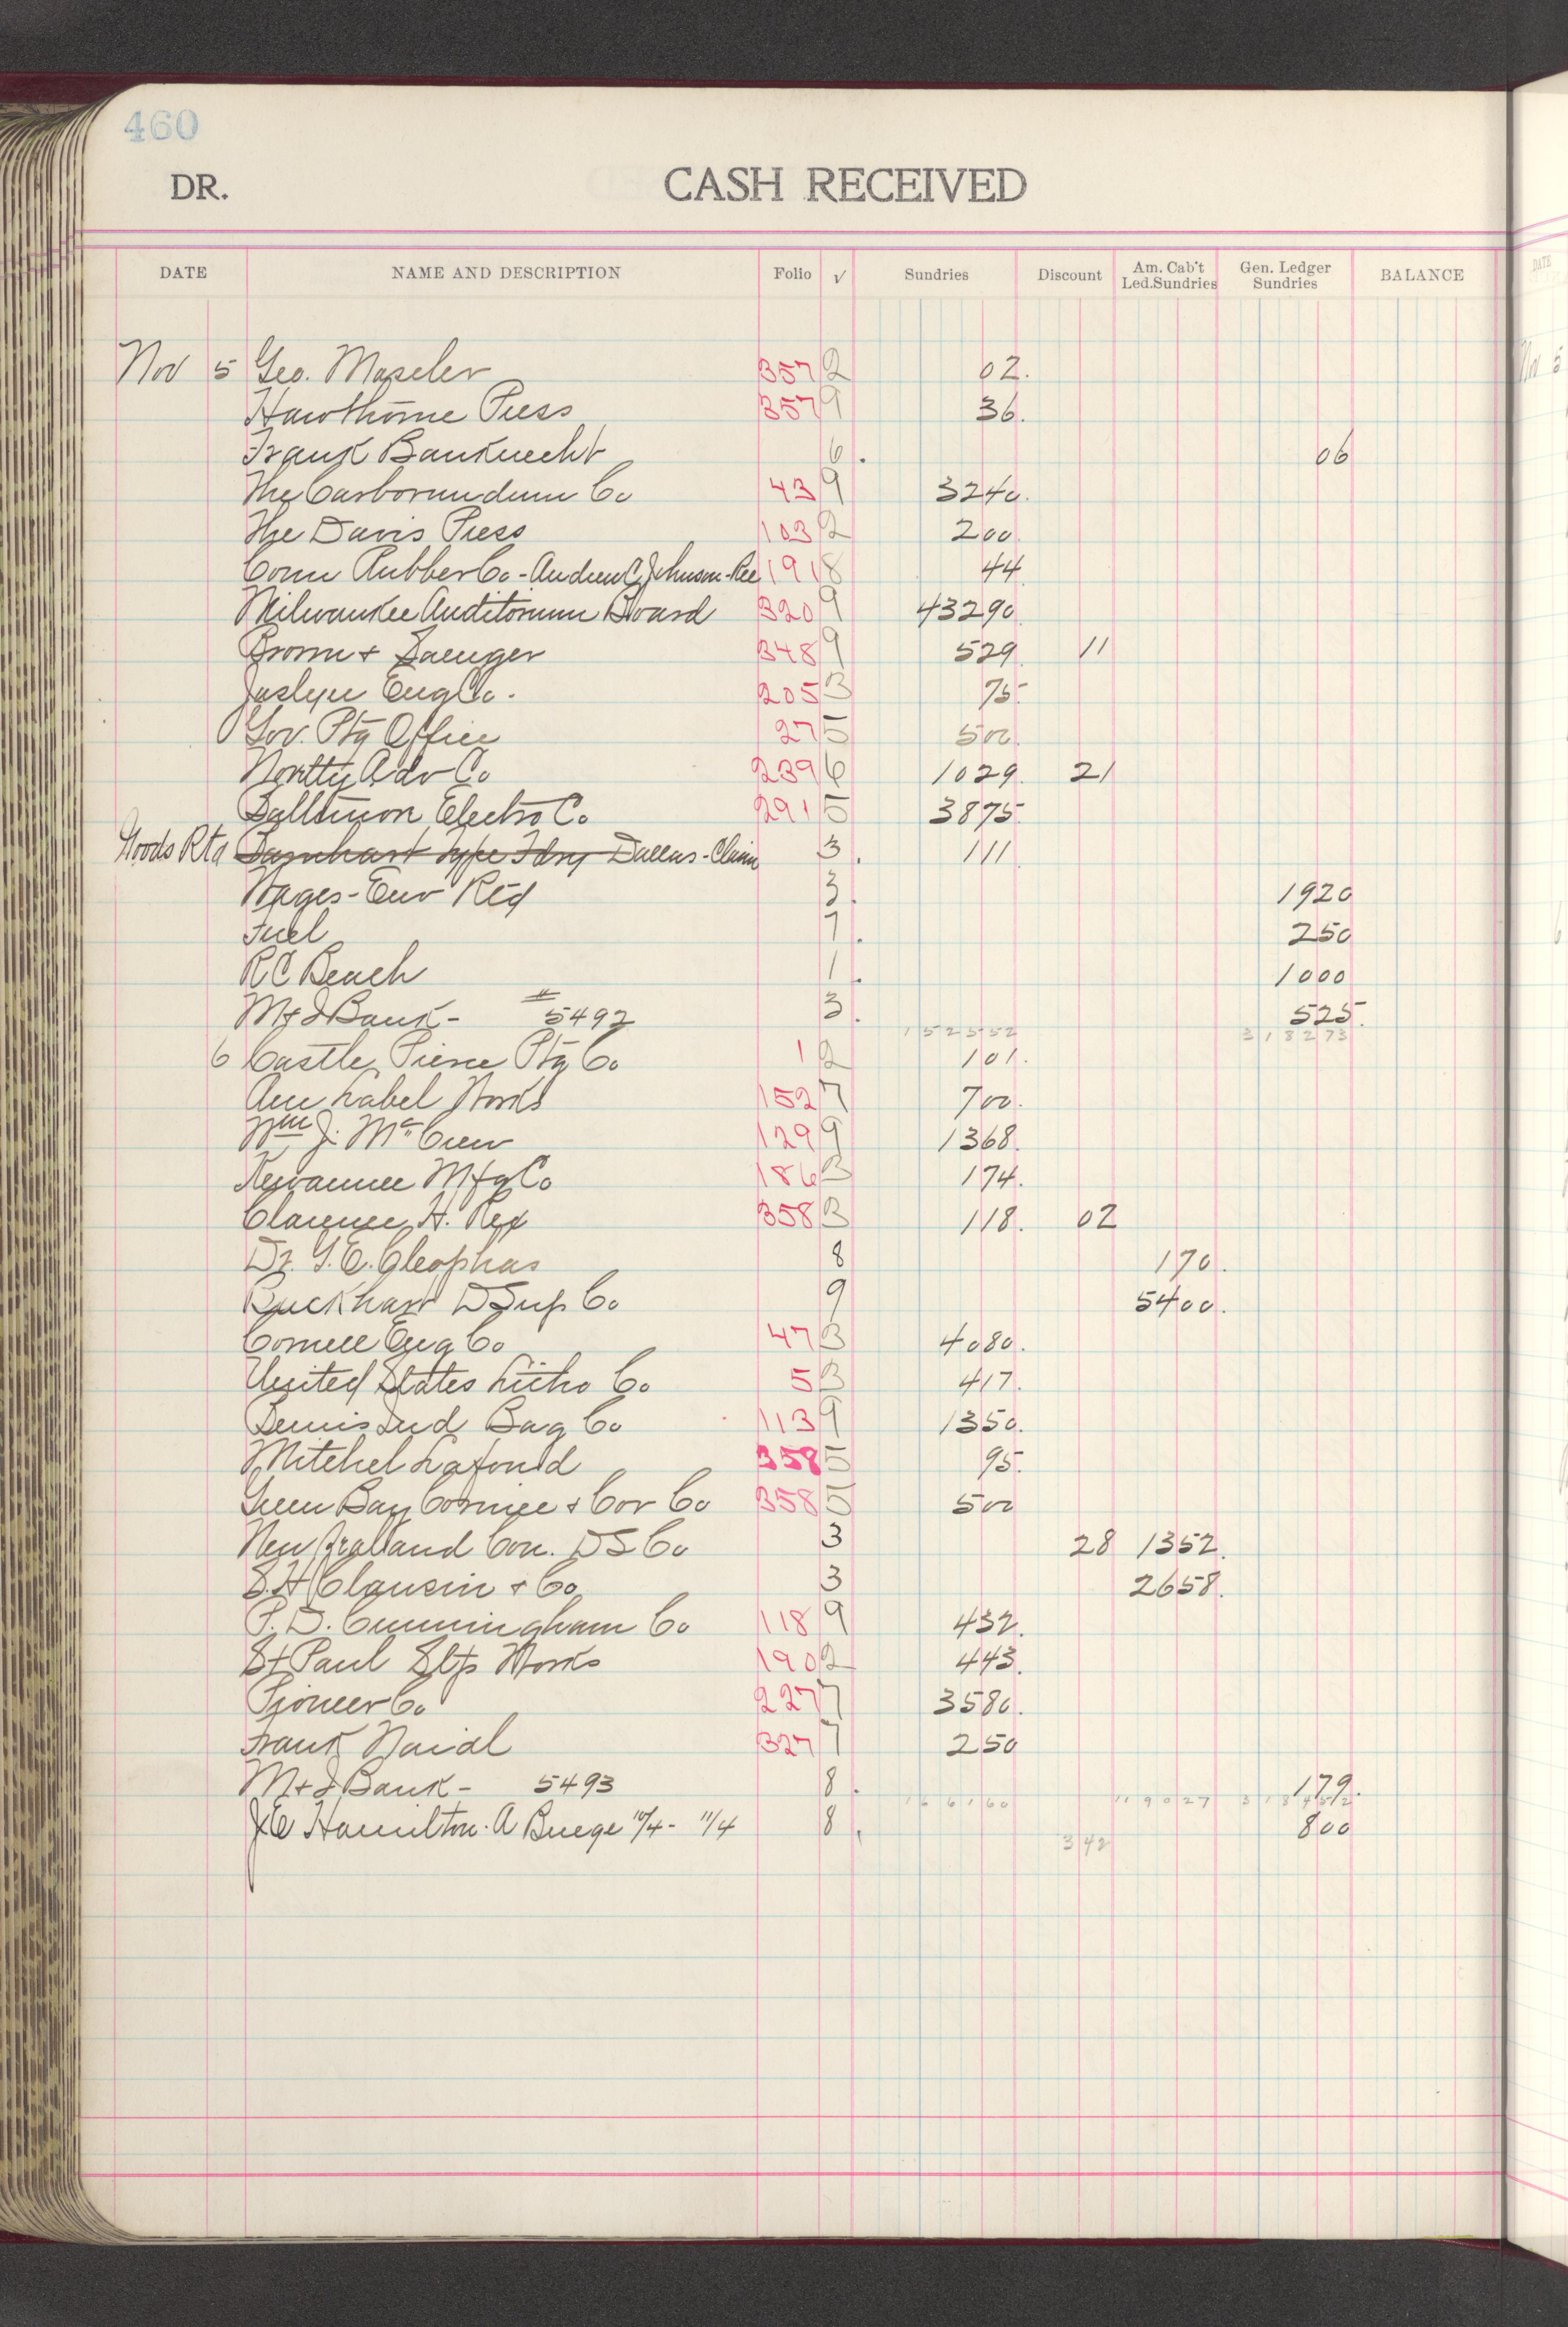 460
DR. CASH RECEIVED
DATE NAME AND DESCRIPTION Folio √ Sundries Discount Am. Cab't Led.Sundries Gen. Ledger Sundries BALANCE
Nov 5 Geo. Maseler 357 2 02.
Hawthorne Press 357 9 36.
Frank Bauknecht 6. 06
The Carborundum Co 43 9 3240.
The Davis Press 103 2 200.
Conn Rubber Co - Andrew C Johnson - Rec 191 8 44
Milwaukee Auditorium Board 320 9 43290.
Brown & Saenger 348 9 529. 11
Joslyn Eng Co. 205 B 75.
Gov. Ptg Office 27 5 500.
Adv Co 239 6 1029. 21
Electro Co 291 5 3875.
Goods Rtd Barnhart Type Fdry Dallas - Claim 3. 111
Wages - Env Rtd 3. 1920
Fuel 7. 250
R C Beach 1. 1000
M & I Bank - # 5492 3. 525.
152552 318273
6 Castle Pierce Ptg Co 1 2 101.
Am Label Works 152 7 700.
Wm J. Mc Crew 129 9 1368.
Kewaunee Mfg Co 186 B 174.
Clarence H. Rex 358 B 118. 02
Dr. G. E. Cleophas 8 170.
Buckhart D Sup Co 9 5400.
Cornell Eng Co 47 B 4080.
United States Litho Co 5 B 417.
Bemis Ind Bag Co 113 9 1350.
Mitchel Lafond 358 5 95.
Green Bay Cornice & Cor Co 358 5 500
New Zealand Con. D S Co 3 28 1352.
S. H Clausin & Co 3 2658.
P. D. Cunningham Co 118 9 432.
St Paul Eltp Works 190 2 443.
Pioneer Co 227 7 3580.
Frank Naidl 327 7 250
M & I Bank - 5493 8. 179.
166160 119027 318452
J E Hamilton. A Buege 10/4 - 11/4 8. 800
342